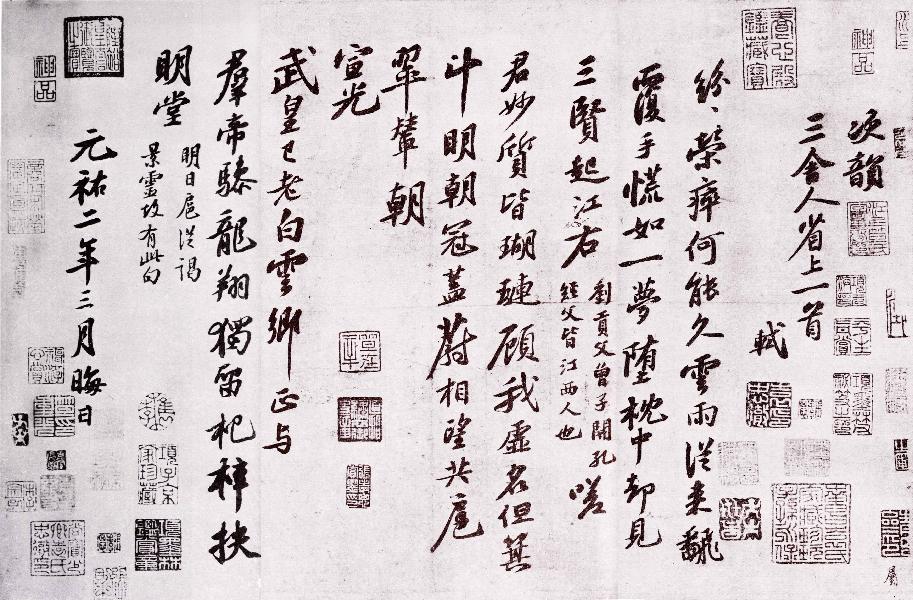 次韻
三舍人省上一首
軾
紛〻榮瘁何能久雲雨從来翻
覆手慌如一夢墮枕中却見
三賢起江右
劉貢父曾子開孔
經父皆江西人也
嗟
君妙質皆瑚璉顧我虛名但箕
斗明朝冠蓋蔚相望共扈
翠輦朝
宣光
武皇已老白雲鄉正与
羣帝驂龍翔獨留杞梓扶
明堂
明日扈從謁
景靈故有此句
元祐二年三月晦日
神品
神品